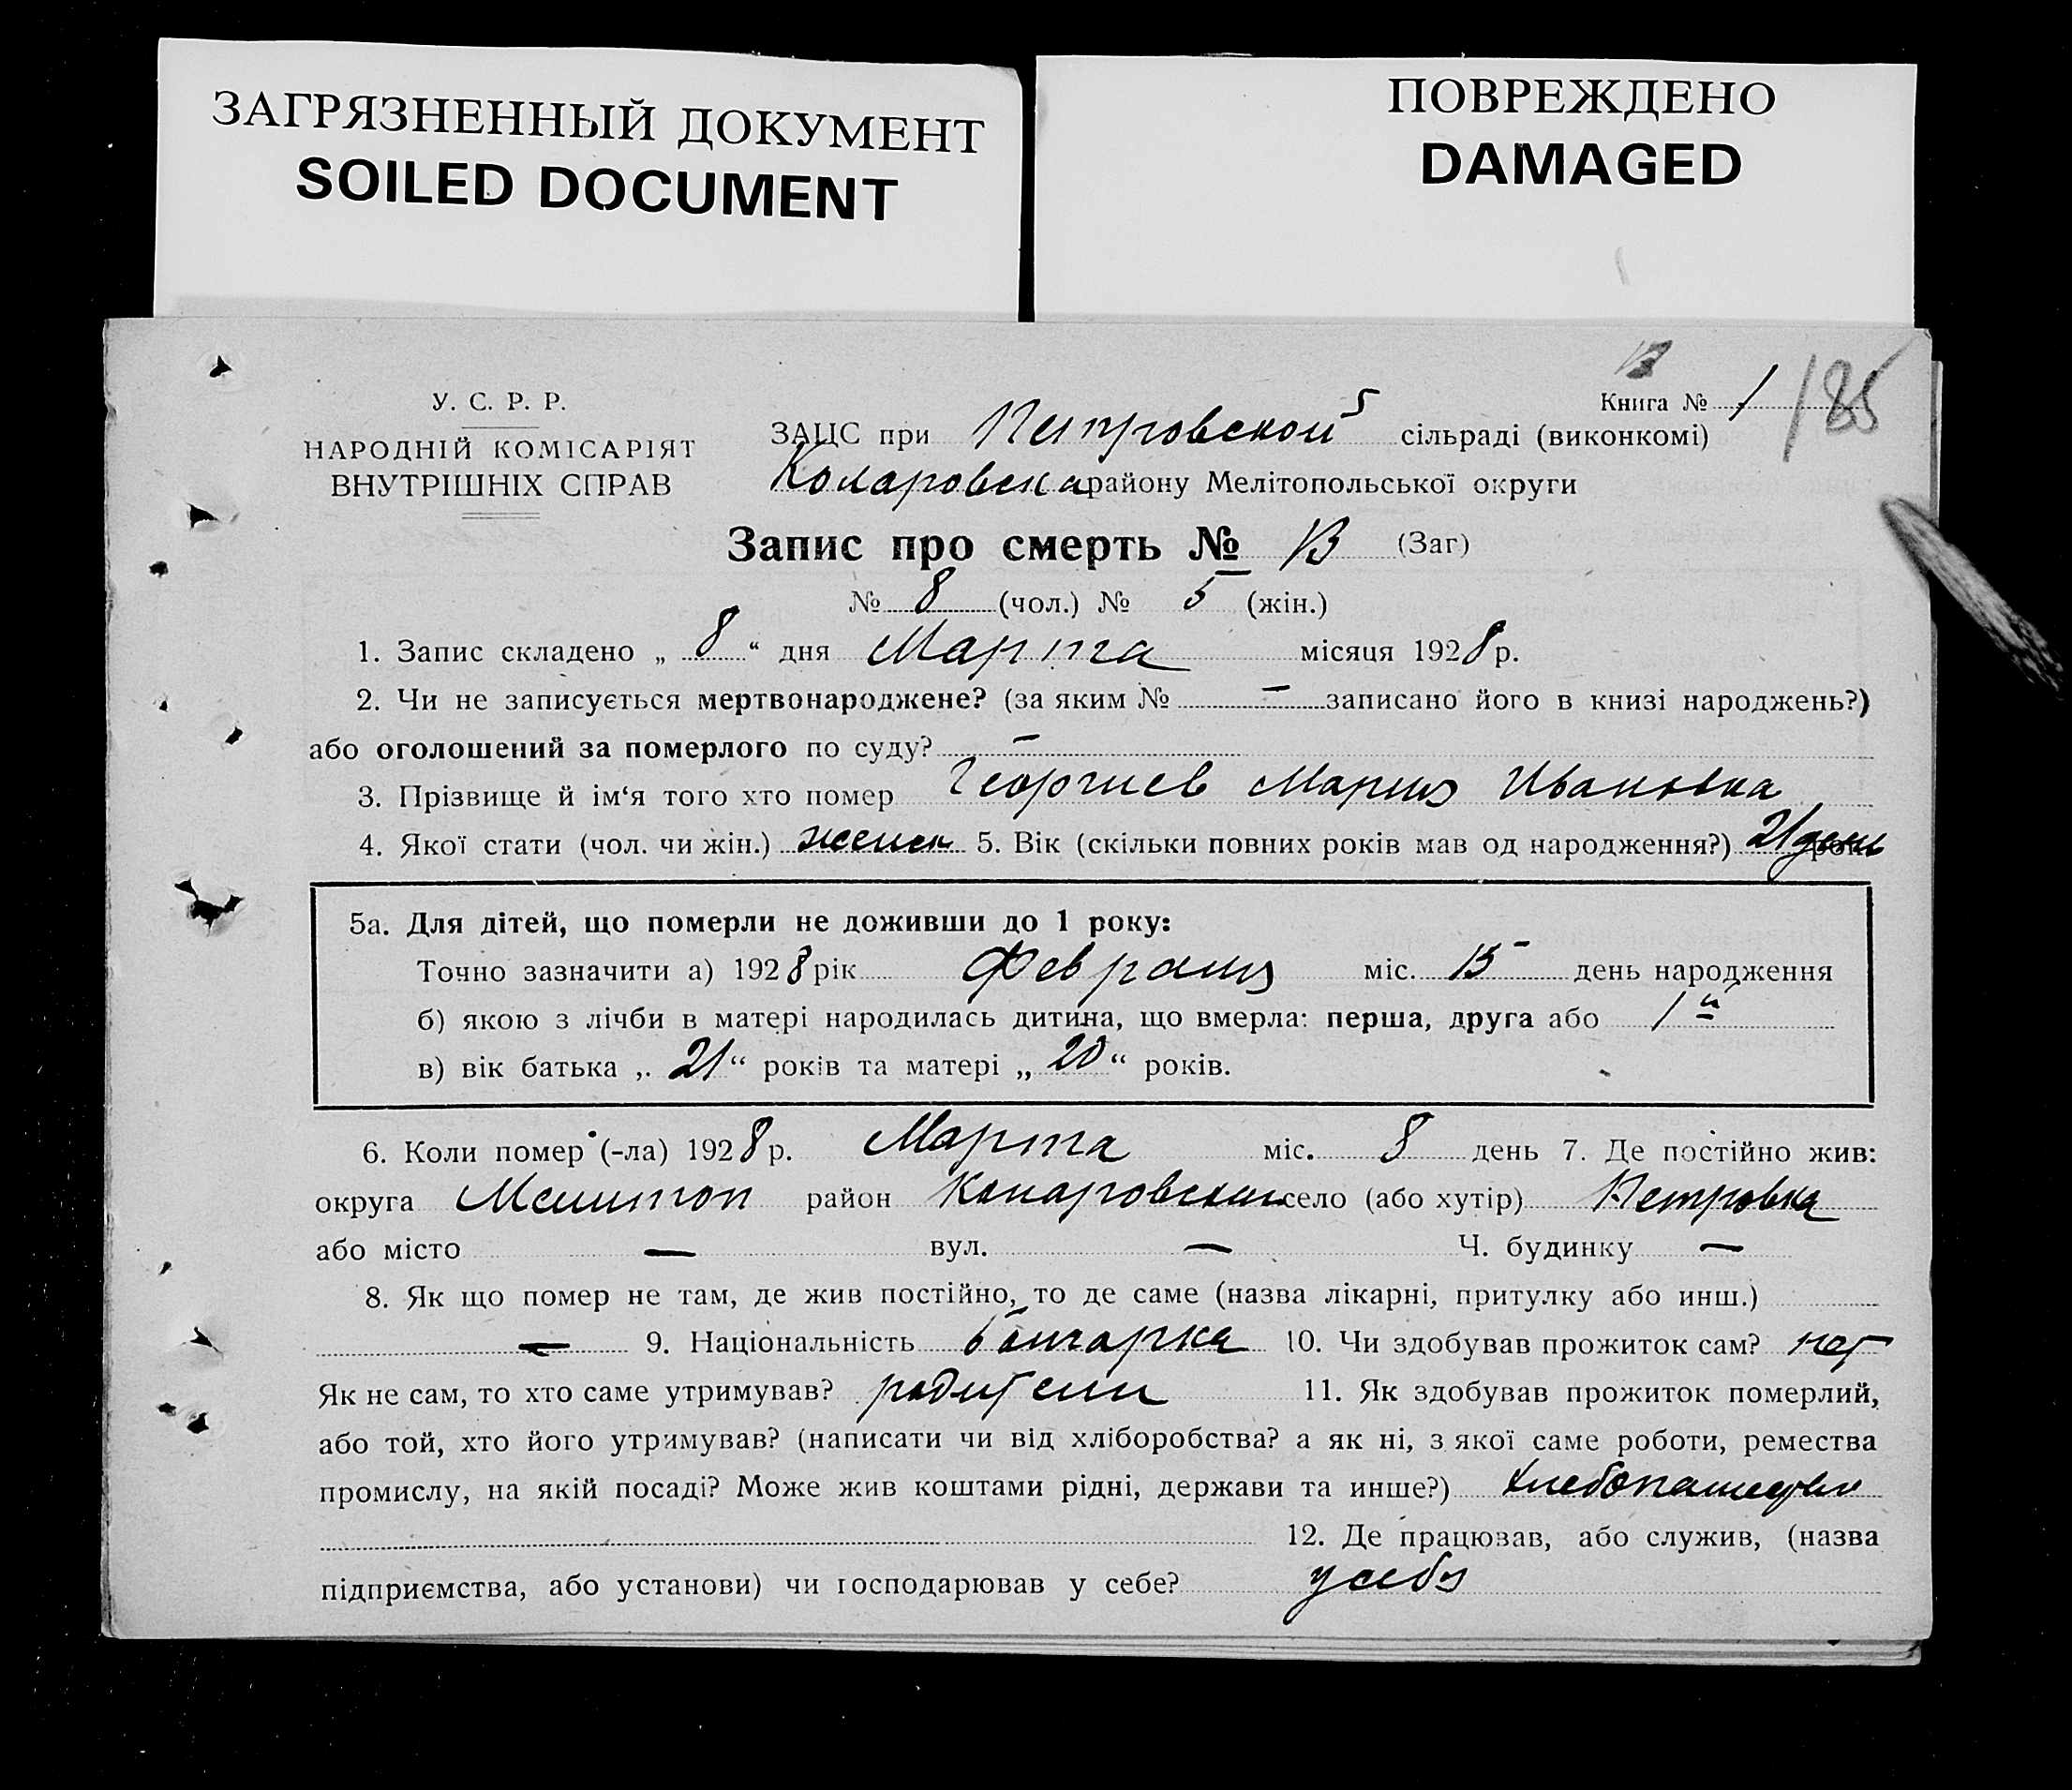 ЗАГРЯЗНЕННЫЙ ДОКУМЕНТ
SOILED DOCUMENT
ПОВРЕЖДЕНО
DAMAGED
У. С. Р. Р.
НАРОДНІЙ КОМІСАРІЯТ
ВНУТРІШНІХ СПРАВ
13
Книга № 1
185
ЗАЦС при Петровской сільраді (виконкомі)
Коларовска району Мелітопольської округи
Запис про смерть № 13 (Заг)
№ 8 (чол.) № 5 (жін.)
1. Запис складено „ 8 “ дня Марта місяця 1928 р.
2. Чи не записується мертвонароджене? (за яким № — записано його в книзі народжень?)
або оголошений за померлого по суду? —
3. Прізвище й ім‘я того хто помер Георгиев Мария Ивановна
4. Якої стати (чол. чи жін.) женск 5. Вік (скільки повних років мав од народження?) 21 день
5а. Для дітей, що померли не доживши до 1 року:
Точно зазначити а) 1928 рік Февраля міс. 15 день народження
б) якою з лічби в матері народилась дитина, що вмерла: перша, друга або 1й
в) вік батька „ 21 “ років та матері „ 20 “ років.
6. Коли помер (-ла) 1928 р. Марта міс. 8 день 7. Де постійно жив:
округа Мелитоп район Коларовский село (або хутір) Петровка
або місто — вул. — Ч. будинку —
8. Як що помер не там, де жив постійно, то де саме (назва лікарні, притулку або инш.)
— 9. Національність болгарка 10. Чи здобував прожиток сам? нет
Як не сам, то хто саме утримував? родители 11. Як здобував прожиток померлий,
або той, хто його утримував? (написати чи від хліборобства? а як ні, з якої саме роботи, ремества
промислу, на якій посаді? Може жив коштами рідні, держави та инше?) хлебопашество
12. Де працював, або служив, (назва
підприємства, або установи) чи господарював у себе? у себя